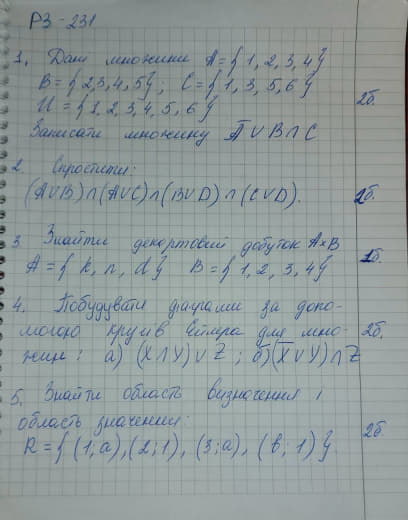 РЗ-231
1. Дані множини A={1,2,3,4}
B={2,3,4,5}; C={1,3,5,6}
U={1,2,3,4,5,6} 2б.
Записати множину A̅∪B∩C
2. Спростити:
(A∪B)∩(A∪C)∩(B∪D)∩(C∪D). 2б.
3 Знайти декартовий добуток A×B
A={k, n, d} B={1,2,3,4} 1б.
4. Побудувати діаграми за допо-
могою кругів Ейлера для мно- 2б.
жин: а) (X∩Y)∪Z; б) (X̅∪Y)∩Z
5. Знайти область визначення і
область значення:
R={(1;a),(2;1), (3;a), (b;1)}. 2б.